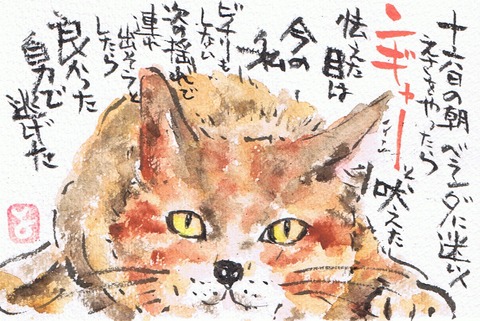 十六日の朝 ベランダに迷い犬
えさをやったら
ニギャーーと吠えた
怯えた目は
今の私
ビクリもしない
次の揺れで
連れ出そうとしたら
良かった
自力で
逃げた